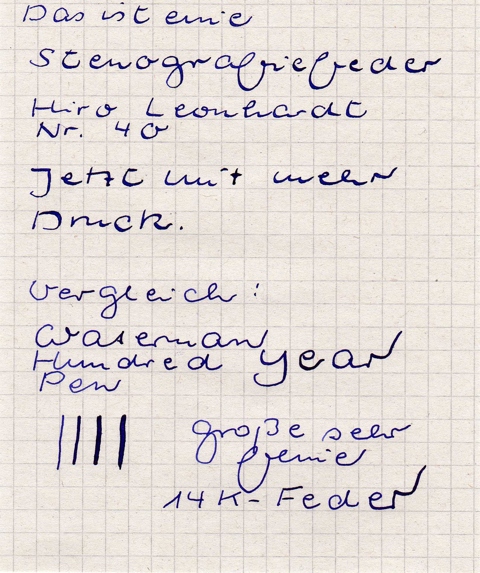 Das ist eine
Stenografiefeder
Hiro Leonhardt
Nr. 40
Jetzt mit mehr
Druck.
Vergleich:
Waterman
Hundred year
Pen
große sehr
feine
14K-Feder